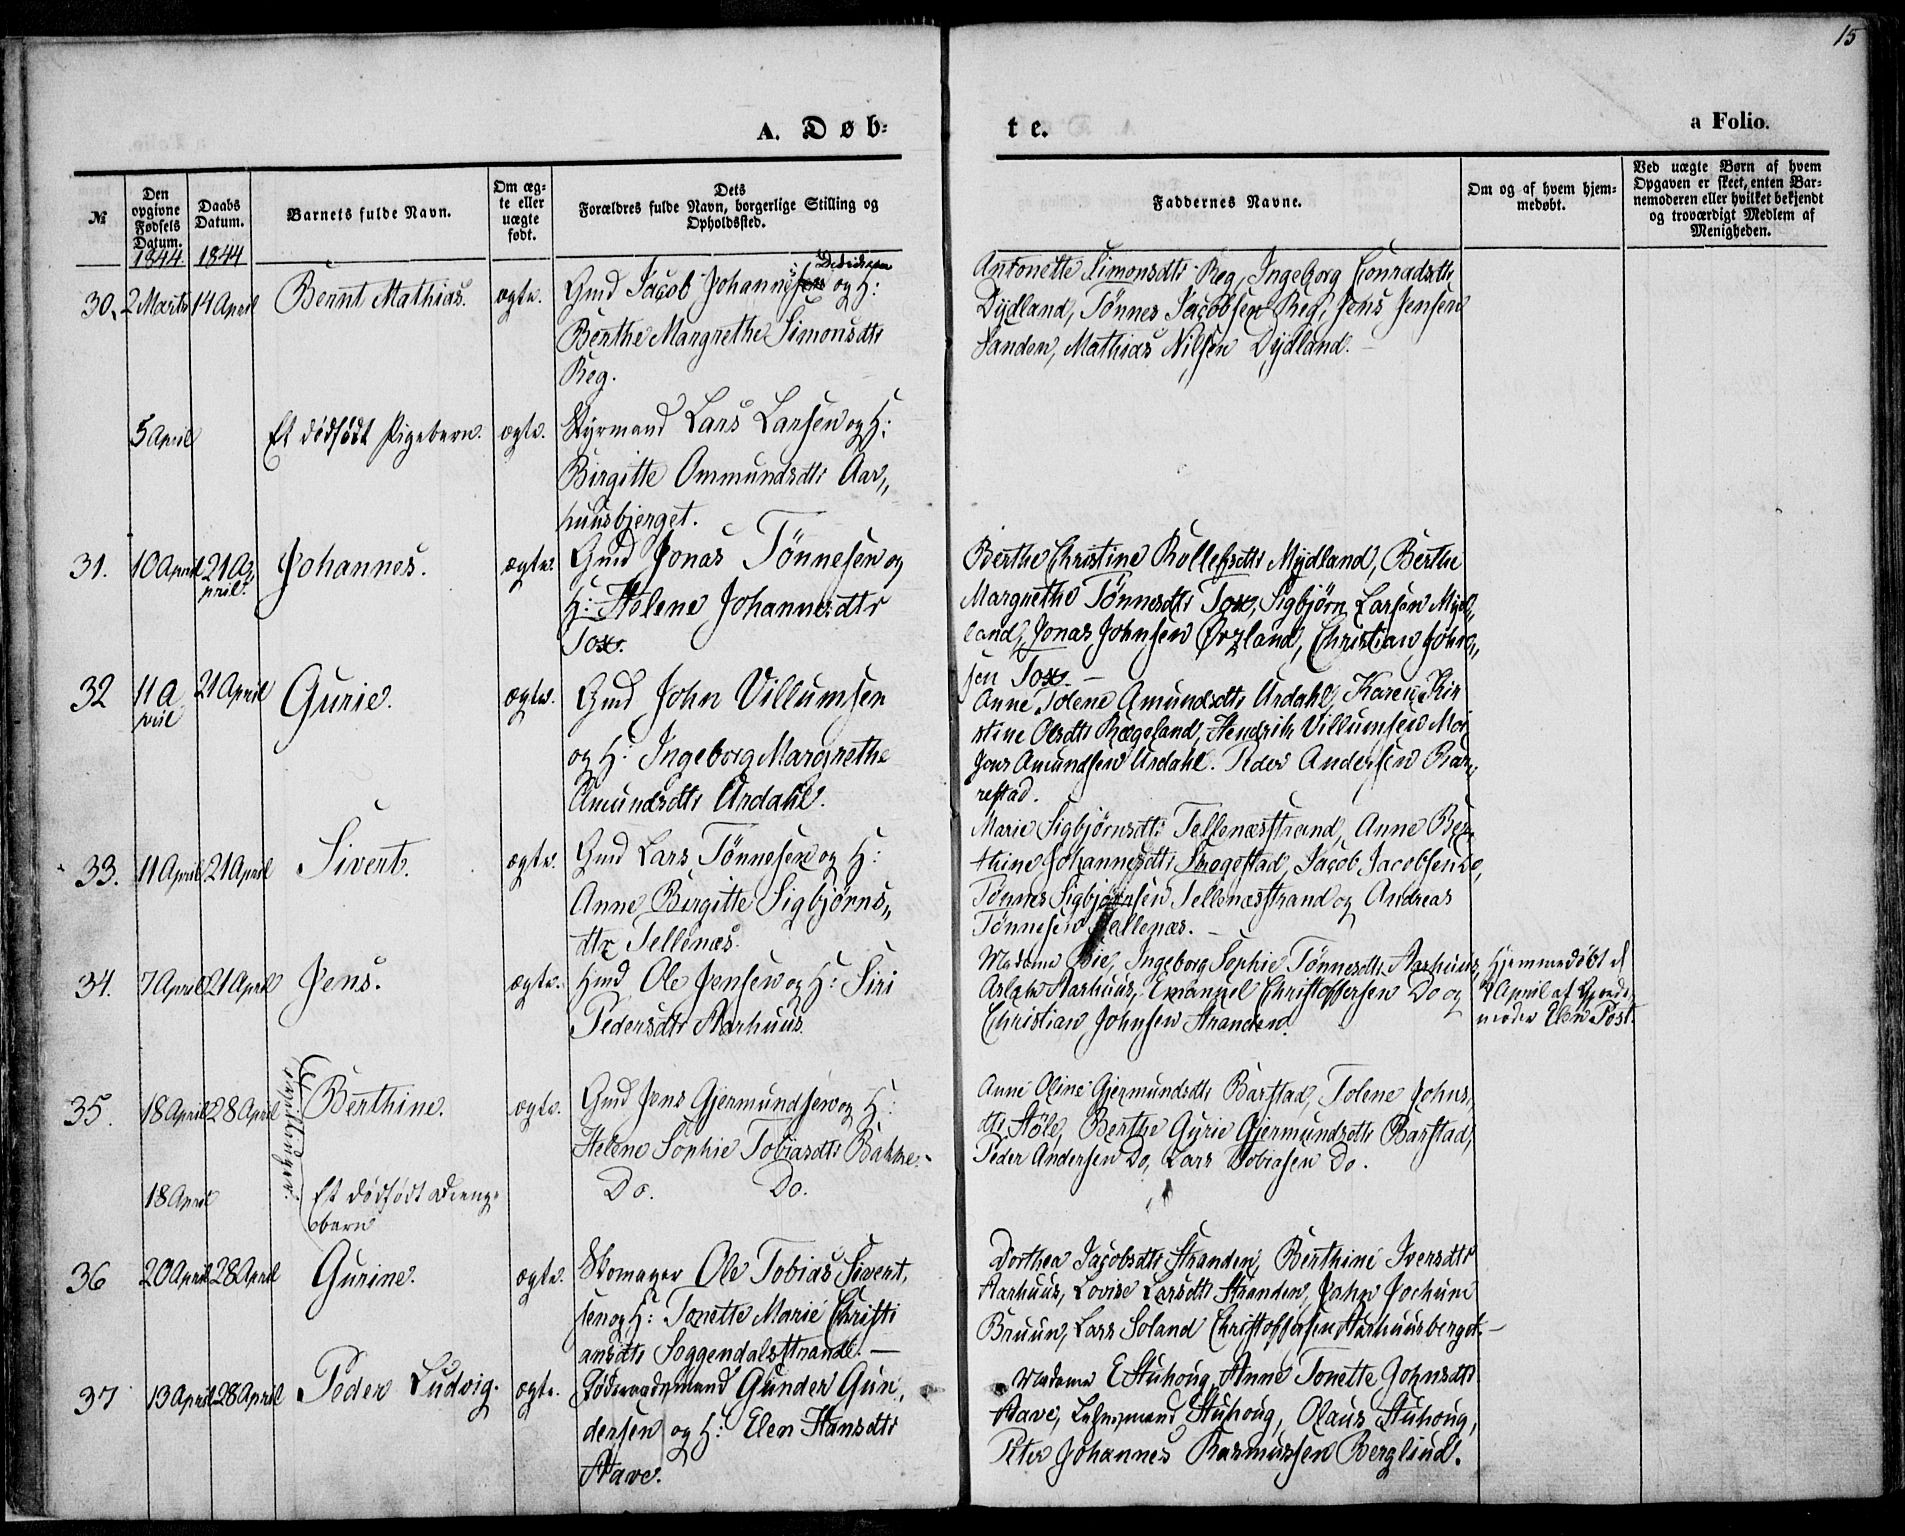 15
A. Døb-
te.
a Folio.
№
Den opgivne Fødsels Datum.
Daabs Datum.
Barnets fulde Navn.
Om æg-te eller uægte født.
Dets Forældres fulde Navn, borgerlige Stilling og Opholdssted.
Faddernes Navne.
Om og af hvem hjem-medøbt.
Ved uægte Børn af hvem Opgaven er skeet, enten Bar-nemoderen eller hvilket bekjendt og troværdigt Medlem af Menigheden.
1844 1844
30. 2 Marts 14 April Bernt Mathias. ægte. Gmd Jacob Johannissen Didriksen og H:
Berthe Margrethe Simonsdtr
Reg.
Antonette Simonsdtr Reg, Ingeborg Conradsdtr
Dydland, Tønnes Jacobsen Reg, Jens Jensen
Sanden, Mathias Nilsen Dydland.
5 April Et dødfødt Pigebarn. ægte. Styrmand Lars Larsen og H:
Birgitte Ommundsdtr Aar„
huusbjerget.
31. 10 April 21 A„ Johannes. ægte. Gmd Jonas Tønnesen og
pril.
H: Helene Johannesdtr
Tox.
Berthe Christine Rollefsdtr Mydland, Berthe
Margrethe Tønnesdtr Tox, Sigbjørn Larsen Myd„
land, Jonas Johnsen Ørsland, Christian John„
sen Tox.
32 11 A 21 April Gurie. ægte. Gmd John Villumsen
pril
og H: Ingeborg Margrethe
Amundsdtr Urdahl.
Anne Tolene Amundsdtr Urdahl, Karen Kir
stine Olsdtr Rægeland, Hendrik Villumsen Moi
Jens Amundsen Urdahl. Peder Andersen Bar„
restad.
33. 11 April 21 April Sivert. ægte. Gmd Lars Tønnesen og H:
Anne Birgitte Sigbjørns„
dtr Tellenæs.
Marie Sigbjørnsdtr Tellenæsstrand, Anne Ber
thine Johannesdtr Skogestad, Jacob Jacobsen Do,
Tønnes Sigbjørnsen Tellenæsstrand og Andreas
Tønnesen Tellenæs.
34. 7 April 21 April Jens. ægte. Hmd Ole Jensen og H: Siri
Pedersdtr Aarhuus.
Madame Bie, Ingeborg Sophie Tønnesdtr Aarhuus,
Aslak Aarhuus, Emanuel Christoffersen Do og
Christian Johnsen Stranden.
Hjemmedøbt d
7 April af Gjorde
moder Elen Post.
35. 18 April 28 April Berthine. ægte. Gmd Jens Gjermundsen og H:
Helene Sophie Tobiasdtr Bakke.
Anne Oline Gjermundsdtr Barstad, Tolene Johns
dtr Støle, Berthe Gurie Gjermundsdtr Barstad,
Peder Andersen Do, Lars Tobiasen Do.
Tvillinger.
18 April Et dødfødt Drenge Do. Do.
barn
36 20 April 28 April Gurine. ægte. Skomager Ole Tobias Sivert„
sen og H: Tonette Marie Christi
ansdtr Soggendalsstrand.
Dorthea Jacobsdtr Stranden, Berthine Iversdtr
Aarhuus, Lovise Larsdtr Stranden, John Jochum
Bruun, Lars Soland Christoffersen Aarhuusberget.
37 13 April 28 April Peder Ludvig. ægte. Gunder Gun„
dersen og H: Elen Hansdtr
Stave.
Madame E Stuhoug, Anne Tonette Johnsdtr
Stave, Lensmand Stuhoug, Olaus Stuhoug,
Peter Johannes Rasmussen Berglund.